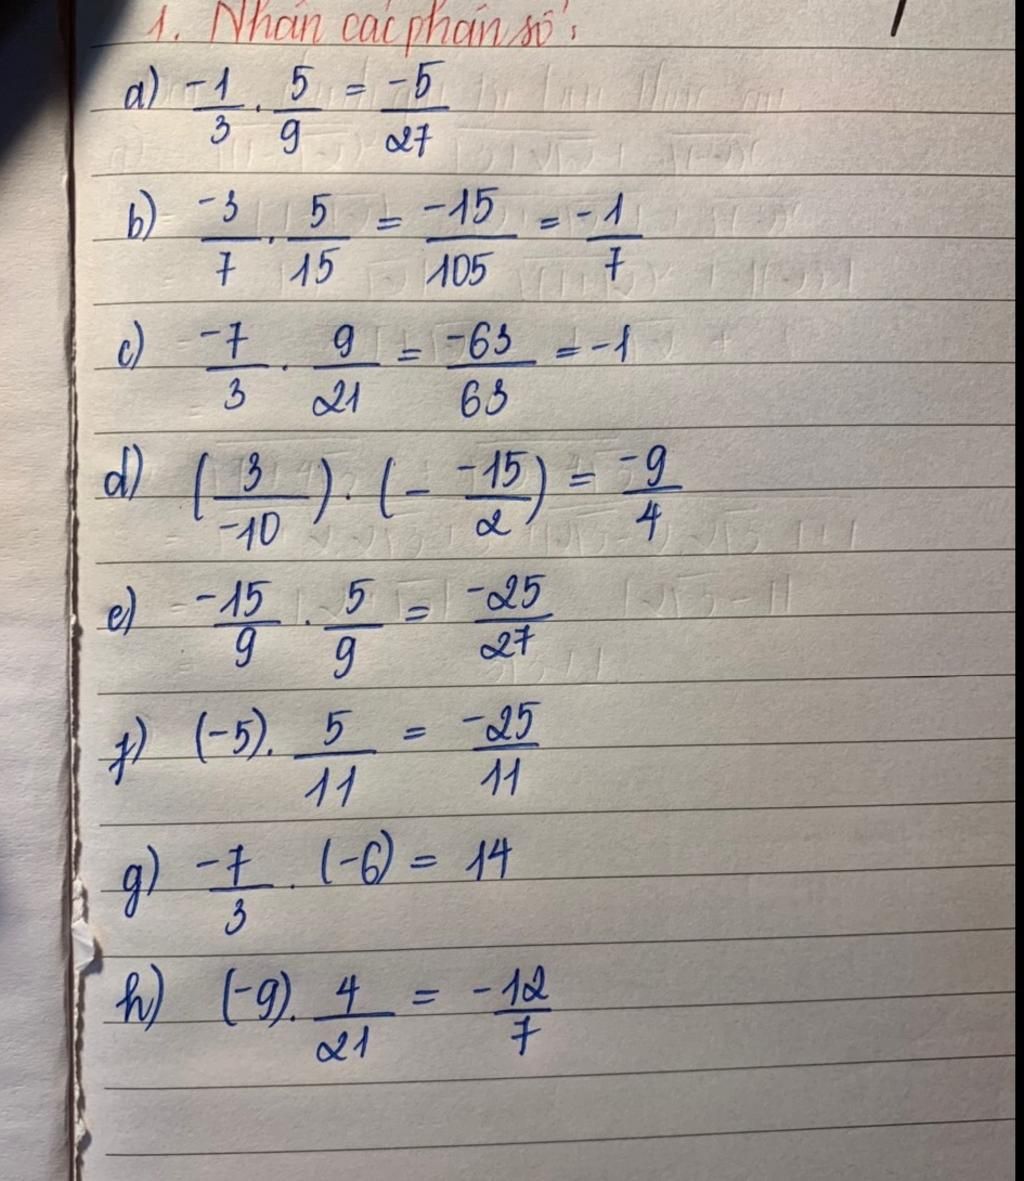 1. Nhân các phân số:
a) -1/3 . 5/9 = -5/27
b) -3/7 . 5/15 = -15/105 = -1/7
c) -7/3 . 9/21 = -63/63 = -1
d) (3/-10) . (- -15/2) = -9/4
e) -15/9 . 5/9 = -25/27
f) (-5). 5/11 = -25/11
g) -7/3 . (-6) = 14
h) (-9). 4/21 = -12/7